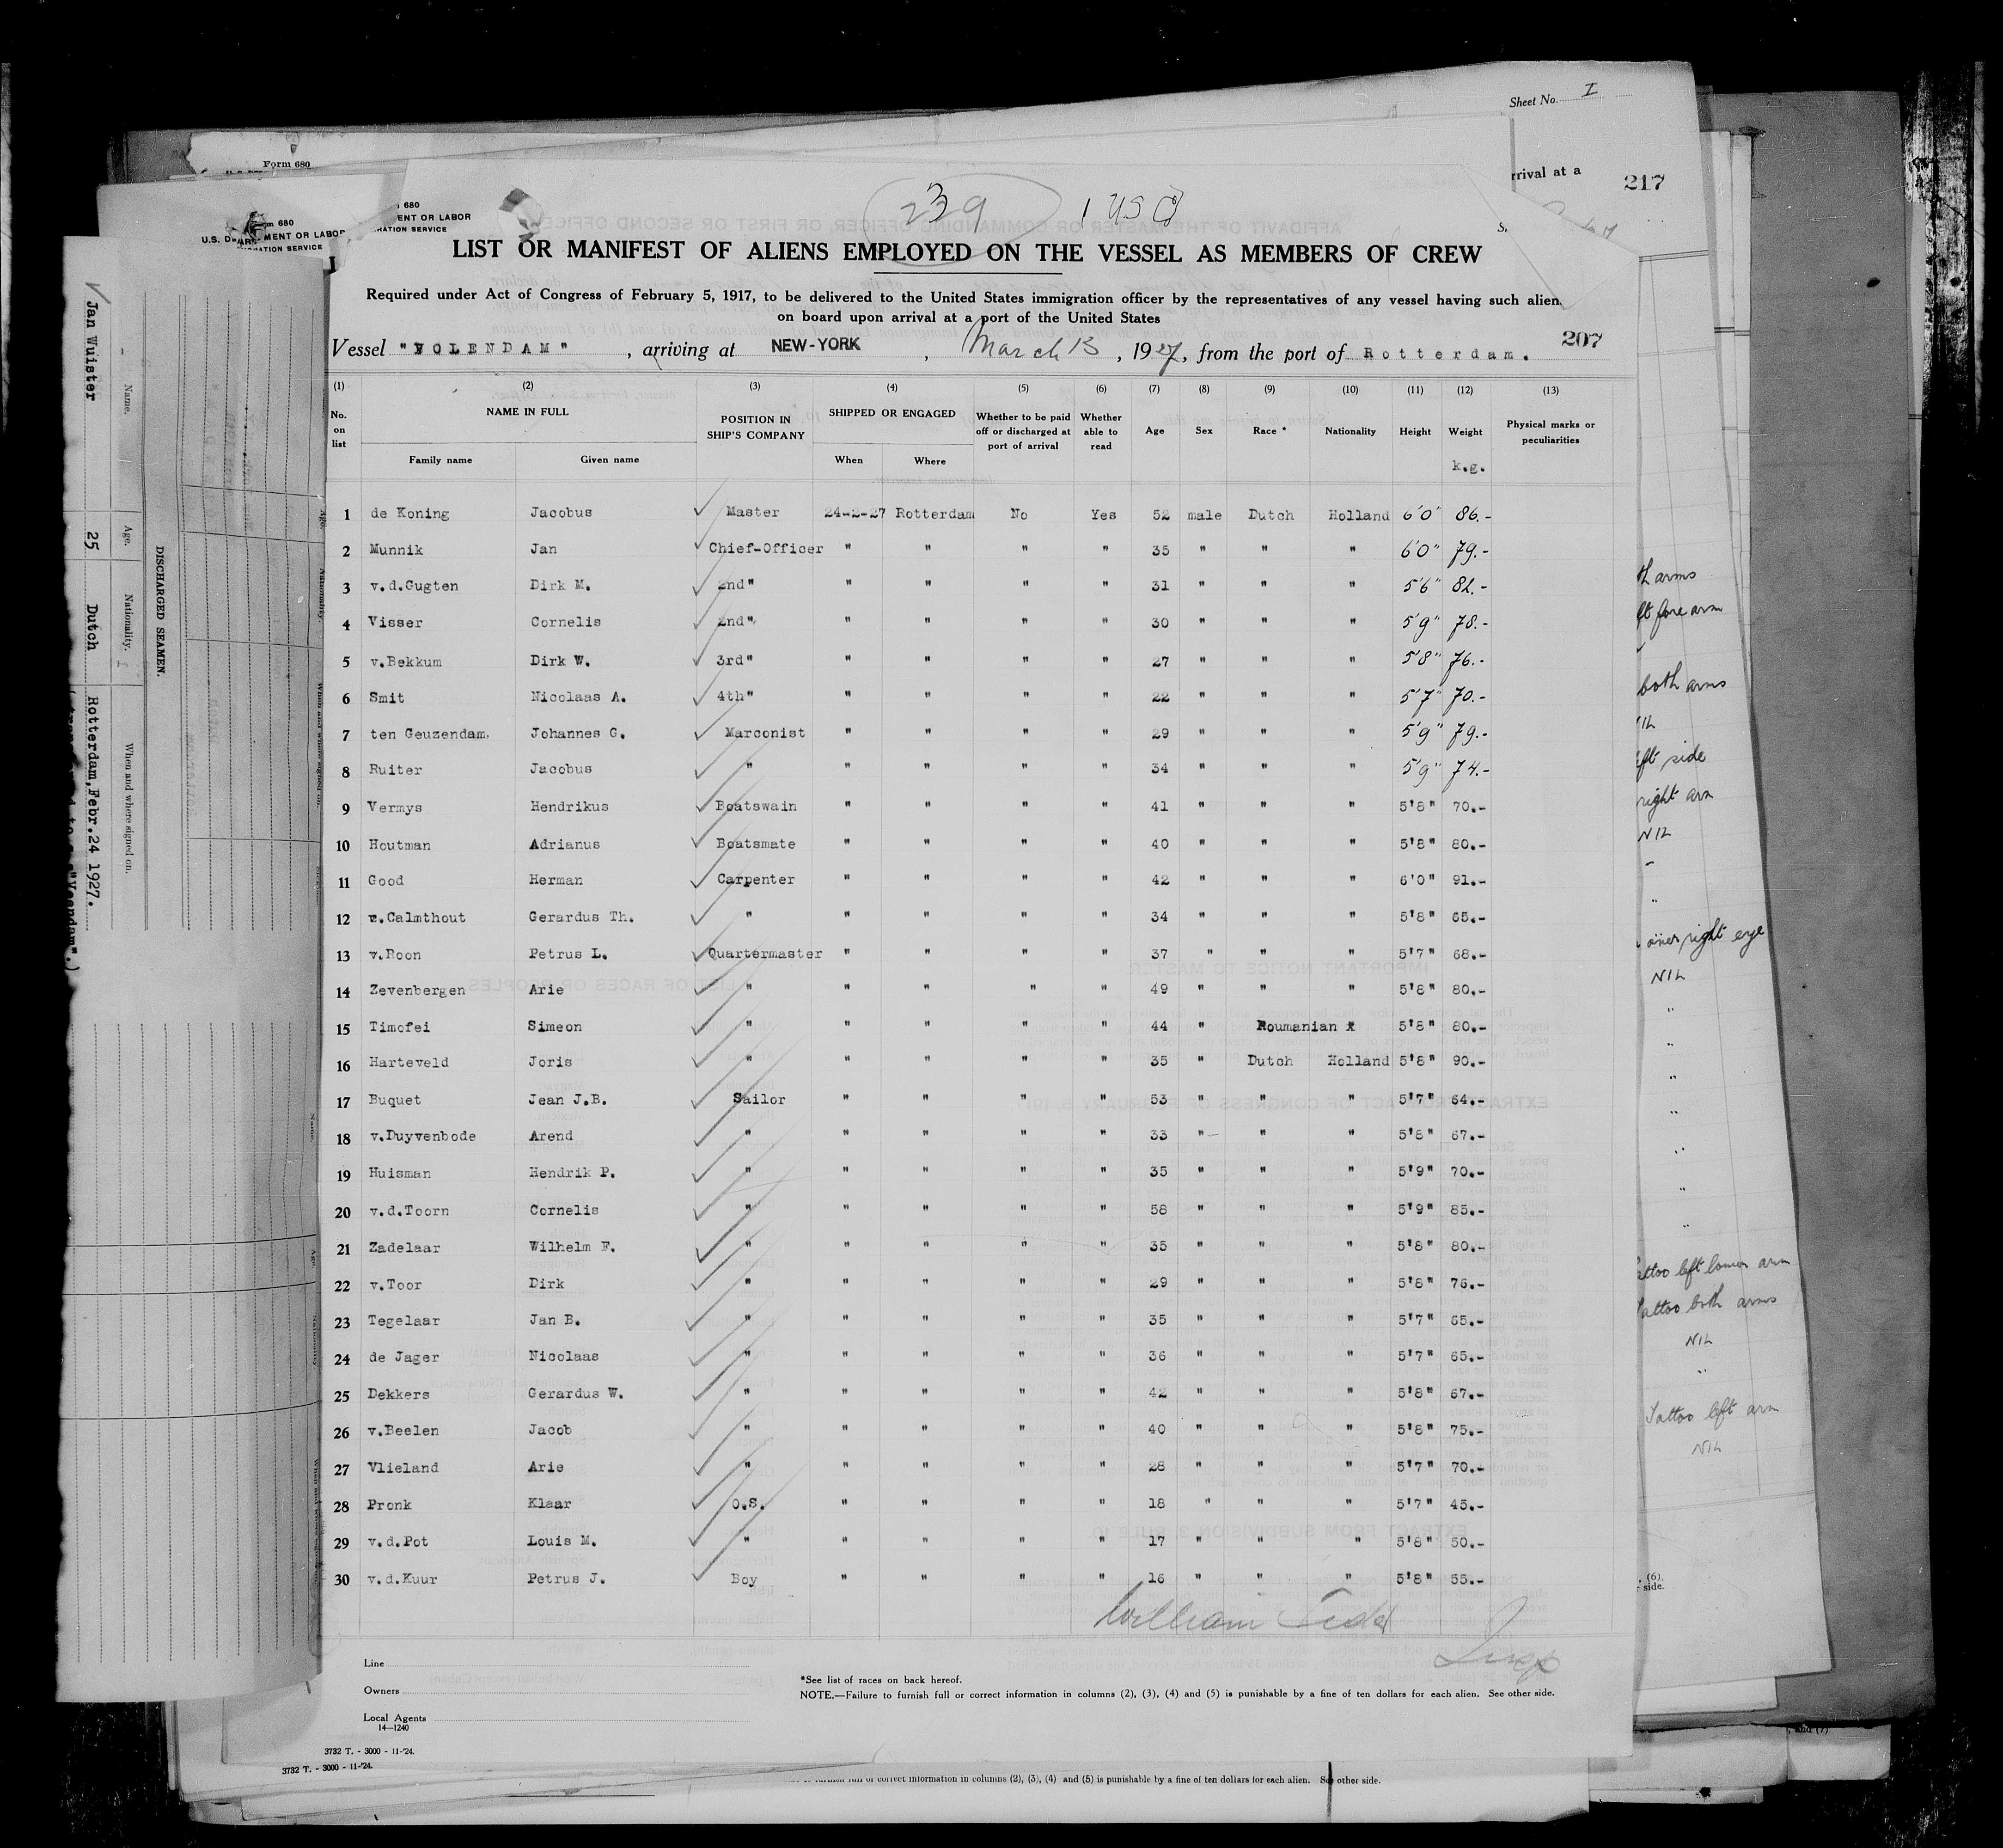 Sheet No. I
rrival at a
217
Form 680
Form 680
U.S. DEPARTMENT OF LABOR
IMMIGRATION SERVICE
680
ENT OR LABOR
RATION SERVICE
239
1 USC
LIST OR MANIFEST OF ALIENS EMPLOYED ON THE VESSEL AS MEMBERS OF CREW
Required under Act of Congress of February 5, 1917, to be delivered to the United States immigration officer by the representatives of any vessel having such alien
on board upon arrival at a port of the United States
207
Vessel "VOLENDAM", arriving at NEW-YORK, March 13, 1927, from the port of Rotterdam.
(1) (2) (3) (4) (5) (6) (7) (8) (9) (10) (11) (12) (13)
No. on list NAME IN FULL POSITION IN SHIP'S COMPANY SHIPPED OR ENGAGED Whether to be paid off or discharged at port of arrival Whether able to read Age Sex Race * Nationality Height Weight Physical marks or peculiarities
Family name Given name When Where k.g.
1 de Koning Jacobus Master 24-2-27 Rotterdam No Yes 52 male Dutch Holland 6'0" 86.-
2 Munnik Jan Chief-Officer " " " " 35 " " " 6'0" 79.-
3 v.d.Gugten Dirk M. 2nd" " " " " 31 " " " 5'6" 82.-
4 Visser Cornelis 2nd" " " " " 30 " " " 5'9" 78.-
5 v.Bekkum Dirk W. 3rd" " " " " 27 " " " 5'8" 76.-
6 Smit Nicolaas A. 4th" " " " " 22 " " " 5'7" 70.-
7 ten Geuzendam. Johannes G. Marconist " " " " 29 " " " 5'9" 79.-
8 Ruiter Jacobus " " " " " 34 " " " 5'9" 74.-
9 Vermys Hendrikus Boatswain " " " " 41 " " " 5'8" 70.-
10 Houtman Adrianus Boatsmate " " " " 40 " " " 5'8" 80.-
11 Good Herman Carpenter " " " " 42 " " " 6'0" 91.-
12 v.Calmthout Gerardus Th. " " " " " 34 " " " 5'8" 65.-
13 v.Roon Petrus L. Quartermaster " " " " 37 " " " 5'7" 68.-
14 Zevenbergen Arie " " " " " 49 " " " 5'8" 80.-
15 Timofei Simeon " " " " " 44 " Roumanian x 5'8" 80.-
16 Harteveld Joris " " " " " 35 " Dutch Holland 5'8" 90.-
17 Buquet Jean J.B. Sailor " " " " 53 " " " 5'7" 64.-
18 v.Duyvenbode Arend " " " " " 33 " " " 5'8" 67.-
19 Huisman Hendrik P. " " " " " 35 " " " 5'9" 70.-
20 v.d.Toorn Cornelis " " " " " 58 " " " 5'9" 85.-
21 Zadelaar Wilhelm F. " " " " " 35 " " " 5'8" 80.-
22 v.Toor Dirk " " " " " 29 " " " 5'8" 76.-
23 Tegelaar Jan B. " " " " " 35 " " " 5'7" 65.-
24 de Jager Nicolaas " " " " " 36 " " " 5'7" 65.-
25 Dekkers Gerardus W. " " " " " 42 " " " 5'8" 67.-
26 v.Beelen Jacob " " " " " 40 " " " 5'8" 75.-
27 Vlieland Arie " " " " " 28 " " " 5'7" 70.-
28 Pronk Klaar O.S. " " " " 18 " " " 5'7" 45.-
29 v.d.Pot Louis M. " " " " " 17 " " " 5'8" 50.-
30 v.d.Kuur Petrus J. Boy " " " " 16 " " " 5'8" 55.-
William
Insp
Line
Owners
Local Agents
14—1240
*See list of races on back hereof.
NOTE.—Failure to furnish full or correct information in columns (2), (3), (4) and (5) is punishable by a fine of ten dollars for each alien. See other side.
3732 T. - 3000 - 11-'24.
3732 T. - 3000 - 11-'24.
full or correct information in columns (2), (3), (4) and (5) is punishable by a fine of ten dollars for each alien. See other side.
DISCHARGED SEAMEN.
Name. Age. Nationality. When and where signed on.
Jan Wuister 25 Dutch Rotterdam,Febr.24 1927.
"Veendam".)
th arms
ft fore arm
both arms
NIL
left side
right arm
NIL
over right eye
NIL
Tattoo left lower arm
Tattoo both arms
NIL
Tattoo left arm
NIL
(6).
side.
and (7)